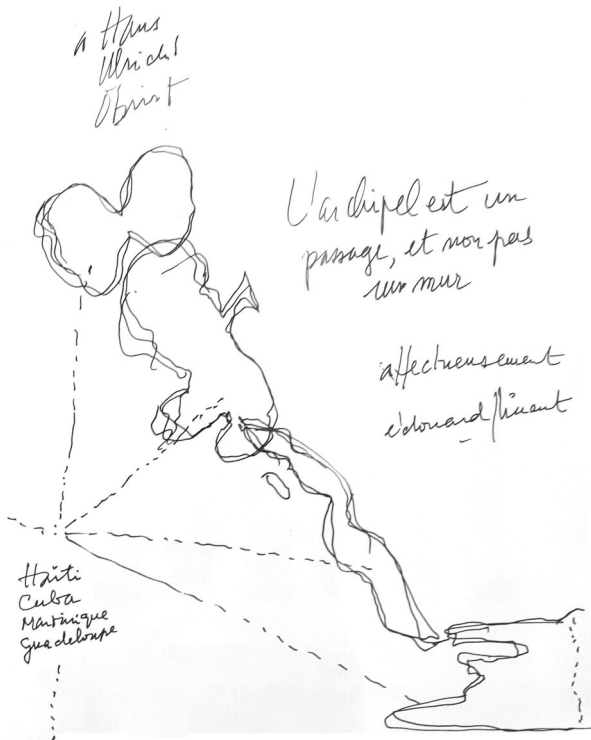 à Hans
Ulrich
Obrist
L'archipel est un
passage, et non pas
un mur
affectueusement
édouard Glissant
Haïti
Cuba
Martinique
Guadeloupe